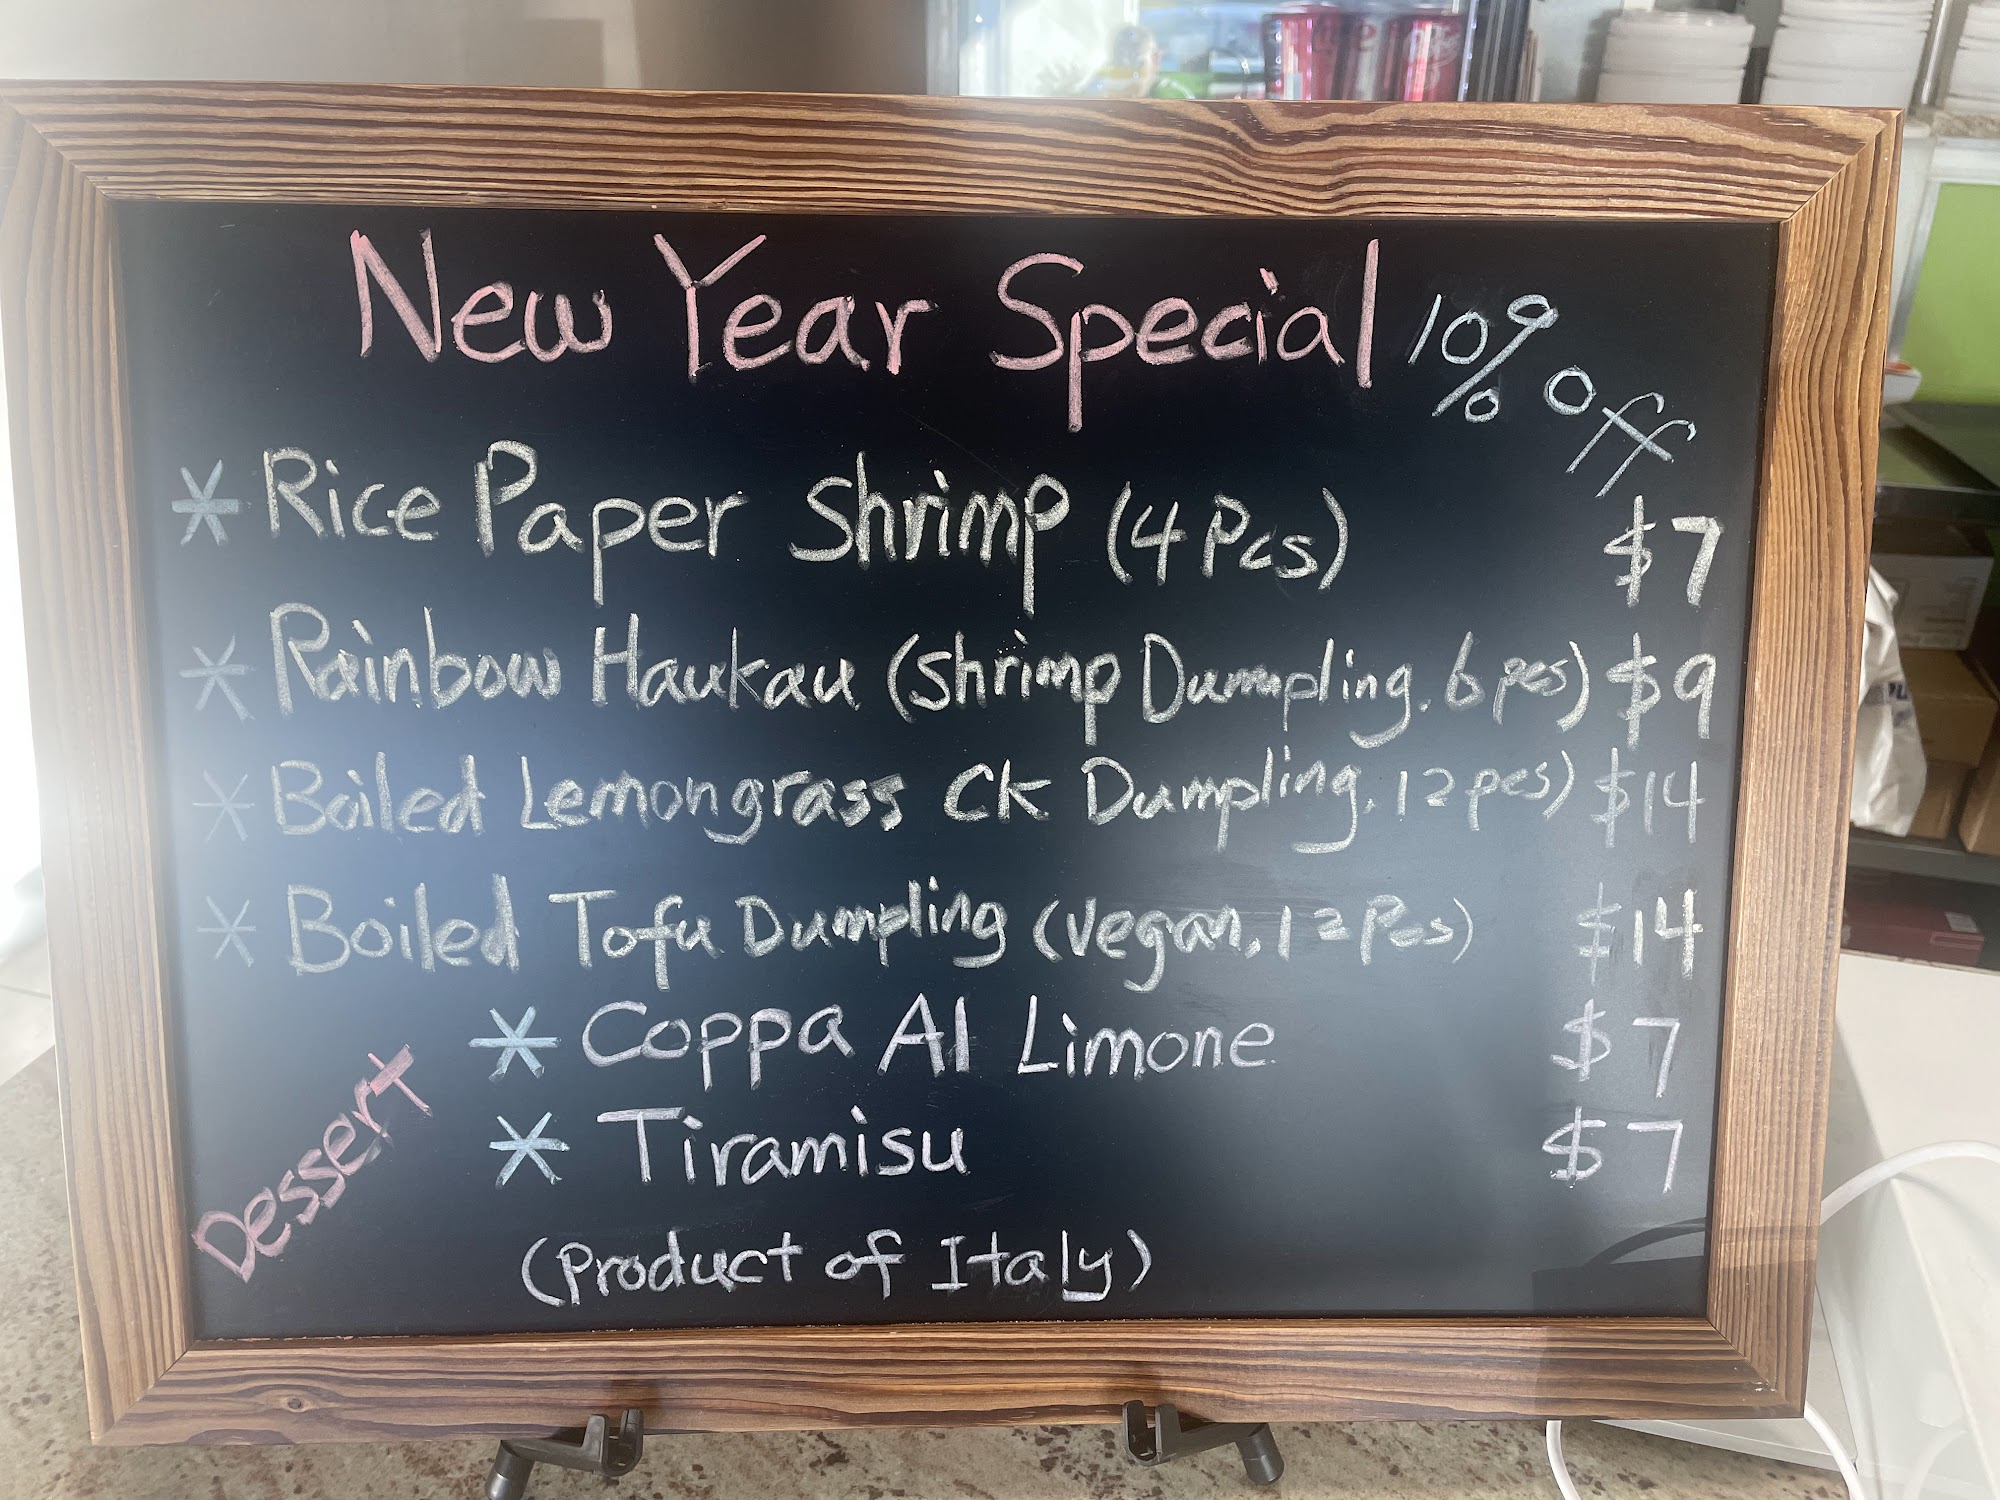 New Year Special 10% off
* Rice Paper Shrimp (4 Pcs) $7
* Rainbow Haukau (Shrimp Dumpling, 6 pcs) $9
* Boiled Lemongrass Ck Dumpling, 12 pcs) $14
* Boiled Tofu Dumpling (Vegan, 12 Pcs) $14
Dessert
* Coppa Al Limone $7
* Tiramisu $7
(Product of Italy)